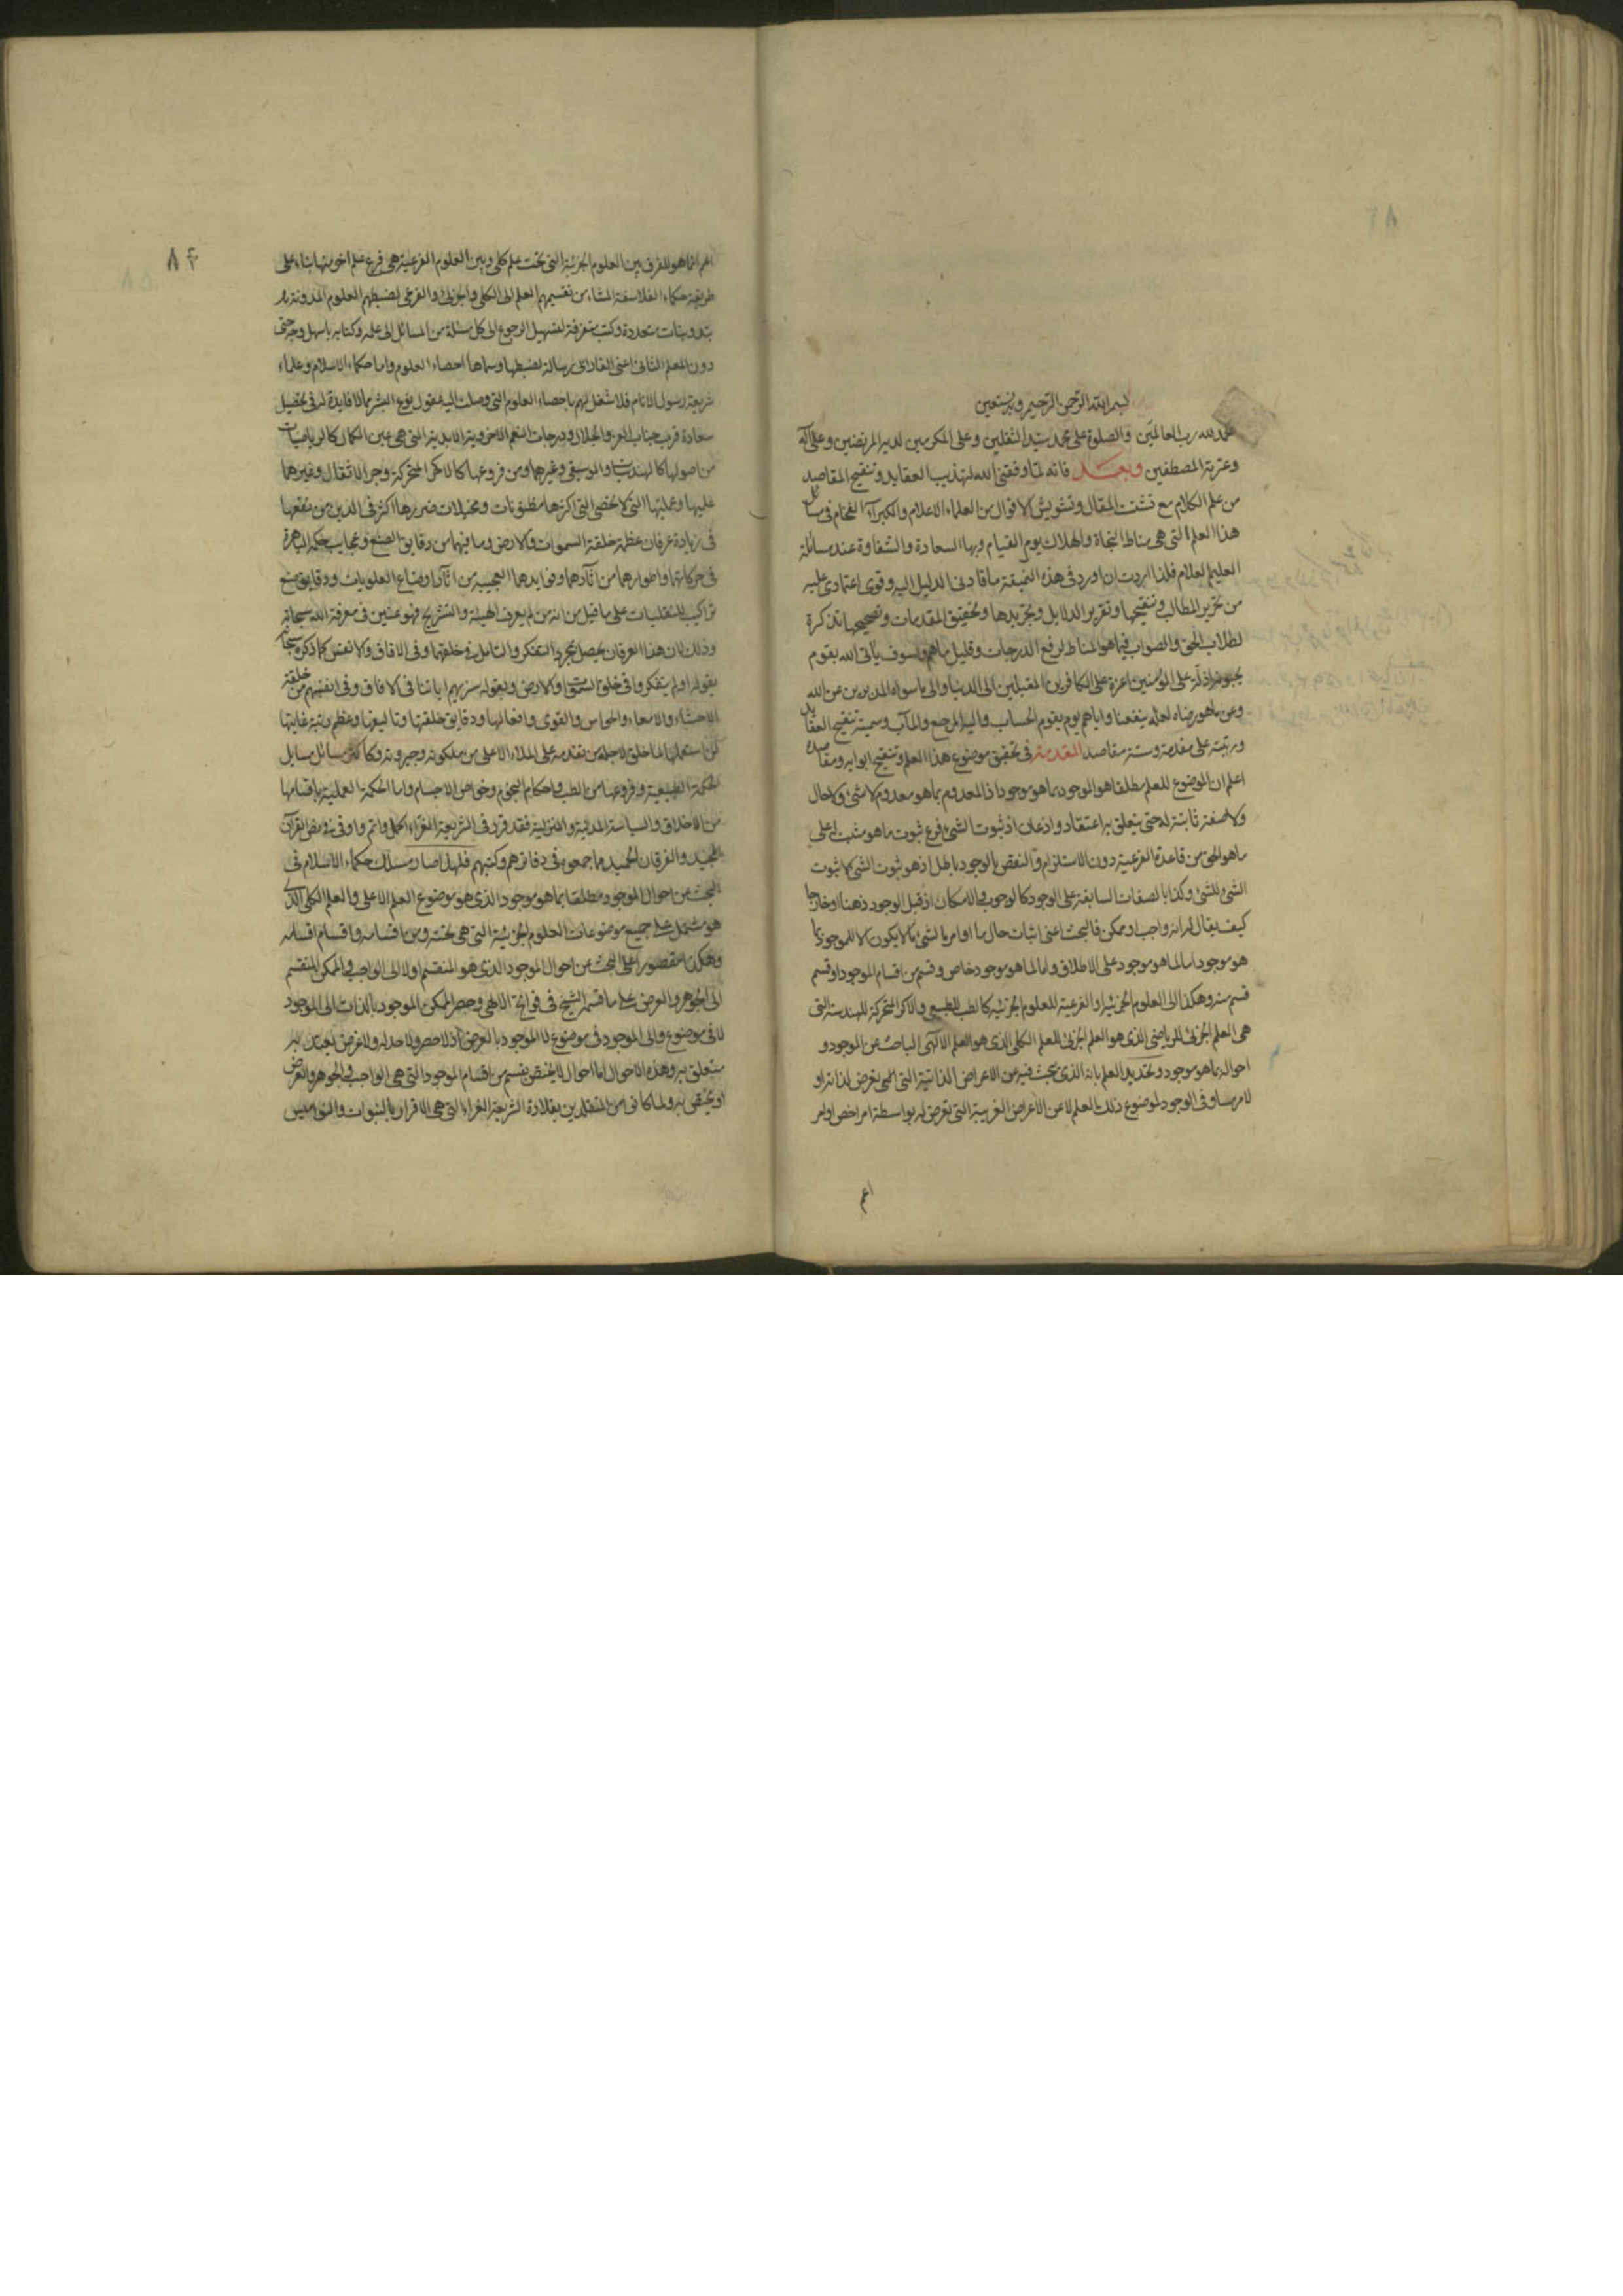 بسم الله الرحمن الرحيم وبه نستعين
الحمد لله رب العالمين والصلوة على محمد سيد الثقلين وعلى المكرمين لديه المرتضين وعلى آله
وعترته المصطفين وبعد فانه لما وفقنى الله لتهذيب العقايد وتنقيح المقاصد
من علم الكلام مع تشتت المقال وتشويش الاقوال من العلماء الاعلام والكبراء الفخام فى مسائل
هذا العلم التى هى مناط النجاة والهلاك يوم القيام وبها السعادة والشقاوة عند مسائلة
العليم العلام فلذا اردت ان اورد فى هذه النميقة ما قادنى الدليل اليه وقوى اعتمادى عليه
من تحرير المطالب وتنقيحها وتقرير الدلايل وتجريدها وتحقيق المقدمات وتصحيحها تذكرة
لطلاب الحق والصواب فيما هو المناط لرفع الدرجات وقليل ما هم ولسوف يأتى الله بقوم
يحبونه اذلة على المؤمنين اعزة على الكافرين المقبلين الى الدنيا والى ما سواه المدبرين عن الله
وعن ما هو رضاه لعله ينفعنا واياهم يوم يقوم الحساب واليه المرجع والمآب وسميته تنقيح العقايد
ورتبته على مقدمة وستة مقاصد المقدمة فى تحقيق موضوع هذا العلم وتنقيح ابوابه ومقاصده
اعلم ان الموضوع للعلم مطلقا هو الموجود بما هو موجود اذ المعدوم بما هو معدوم لا شئ ولا حال
ولا صفة ثابتة له حتى يتعلق به اعتقاد واذعان اذ ثبوت الشئ فرع ثبوت ما هو مثبت له على
ما هو الحق من قاعدة الفرعية دون الاستلزام والنقض بالوجود باطل اذ هو ثبوت الشئ لا ثبوت
الشئ للشئ وكذا بالصفات السابقة على الوجود كالوجوب والامكان اذ قبل الوجود ذهنا او خارجا
كيف يقال له انه واجب او ممكن فالبحث اعنى اثبات حال ما او امر ما لشئ ما لا يكون الا للموجود
هو موجود اما لما هو موجود على الاطلاق واما لما هو موجود خاص وقسم من اقسام الموجود او قسم
قسم منه وهكذا الى العلوم الجزئية والفرعية للعلوم الجزئية كالطب للطبيعى والاكر المتحركة للهندسة التى
هى العلم الجزئى للرياضى الذى هو العلم الجزئى للعلم الكلى الذى هو العلم الالهى الباحث عن الموجود و
احواله بما هو موجود وتحديد العلم بانه الذى يبحث فيه عن الاعراض الذاتية التى هى تعرض لذاته او
لامر يساويه فى الوجود لموضوع ذلك العلم لا عن الاعراض الغريبة التى تعرض له بواسطة امر اخص او امر
اعم
٨٤
اعم انما هو للفرق بين العلوم الجزئية التى تحت علم كلى وبين العلوم الفرعية هى فرع علم اخر منها بناء على
طريقة حكماء الفلاسفة المشاء من تقسيمهم العلم الى الكلى والجزئى والفرعى لضبطهم العلوم المدونة
بتدوينات متعددة وكتب متفرقة لتسهيل الرجوع الى كل مسئلة من المسائل الى علمه وكتابه باسهل وجه حتى
دون المعلم الثانى اعنى الفارابى رسالة لضبطها وسماها احصاء العلوم واما حكماء الاسلام وعلماء
شريعة رسول الانام فلا شغل لهم باحصاء العلوم التى وصلت اليه عقول نوع البشر مما لا فايدة له فى تحصيل
سعادة قرب جناب العز والجلال ودرجات النعم الاخروية الابدية التى هى عين الكمال كالرياضيات
من اصولها كالهندسيات والموسيقى وغيرهما ومن فروعها كالاكر المتحركة وجر الاثقال وغيرهما
علميها وعمليها التى لا تحصى التى اكثرها مظنونات ومخيلات ضررها اكثر فى الدين من نفعها
فى زيادة عرفان عظمة خلقة السموات والارض وما فيهما من دقايق الصنع وعجايب حكمه الباهرة
فى حركاتهما واطوارهما من آثارهما وفوايدهما العجيبة من اثار اوضاع العلويات ودقايق صنع
تراكيب السفليات على ما قيل من انه من لم يعرف الهيئة والتشريح فهو عنين فى معرفة الله سبحانه
وذلك لان هذا العرفان يحصل بمجرد التفكر والتامل فى خلقتهما وفى الافاق والانفس كما ذكره سبحانه
بقوله اولم يتفكروا فى خلق السموات والارض وبقوله سنريهم اياتنا فى الافاق وفى انفسهم من خلقة
الاحشاء والامعاء والحواس والقوى وافعالها ودقايق خلقتها وتاليفها وعظم رتبة غايتها
لمن استعملها لما خلق لاجله من تقدمه على الملاء الاعلى من ملكوته وجبروته وكاكثر مسائل مسايل
الحكمة الطبيعية وفروعها من الطب واحكام النجوم وخواص الاجسام واما الحكمة العملية باقسامها
من الاخلاق والسياسة المدنية والمنزلية فقد قرر فى الشريعة الغراء اكمل واتم واوفى فى بعض القرآن
المجيد والفرقان الحميد مما جمعوه فى دفاترهم وكتبهم فلهذا صار مسلك حكماء الاسلام فى
البحث عن احوال الموجود مطلقا بما هو موجود الذى هو موضوع العلم الاعلى والعلم الكلى الذى
هو مشتمل على جميع موضوعات العلوم الجزئية التى هى تحته ومن اقسامه واقسام اقسامه
وهكذا مقصورا على البحث عن احوال الموجود الذى هو المنقسم اولا الى الواجب والممكن المنقسم
الى الجوهر والعرض على ما قسمه الشيخ فى فواتح الالهى وحصر الممكن الموجود بالذات الى الموجود
لا فى موضوع والى الموجود فى موضوع لا الموجود بالعرض اذ لا حصر ولا حد له ولا غرض
متعلق به وهذه الاحوال اما احوال لا يختص بقسم من اقسام الموجود التى هى الواجب والجوهر والعرض
او يختص به ولما كانوا من المتقلدين بقلادة الشريعة الغراء التى هى الاقرار بالنبوات والنواميس